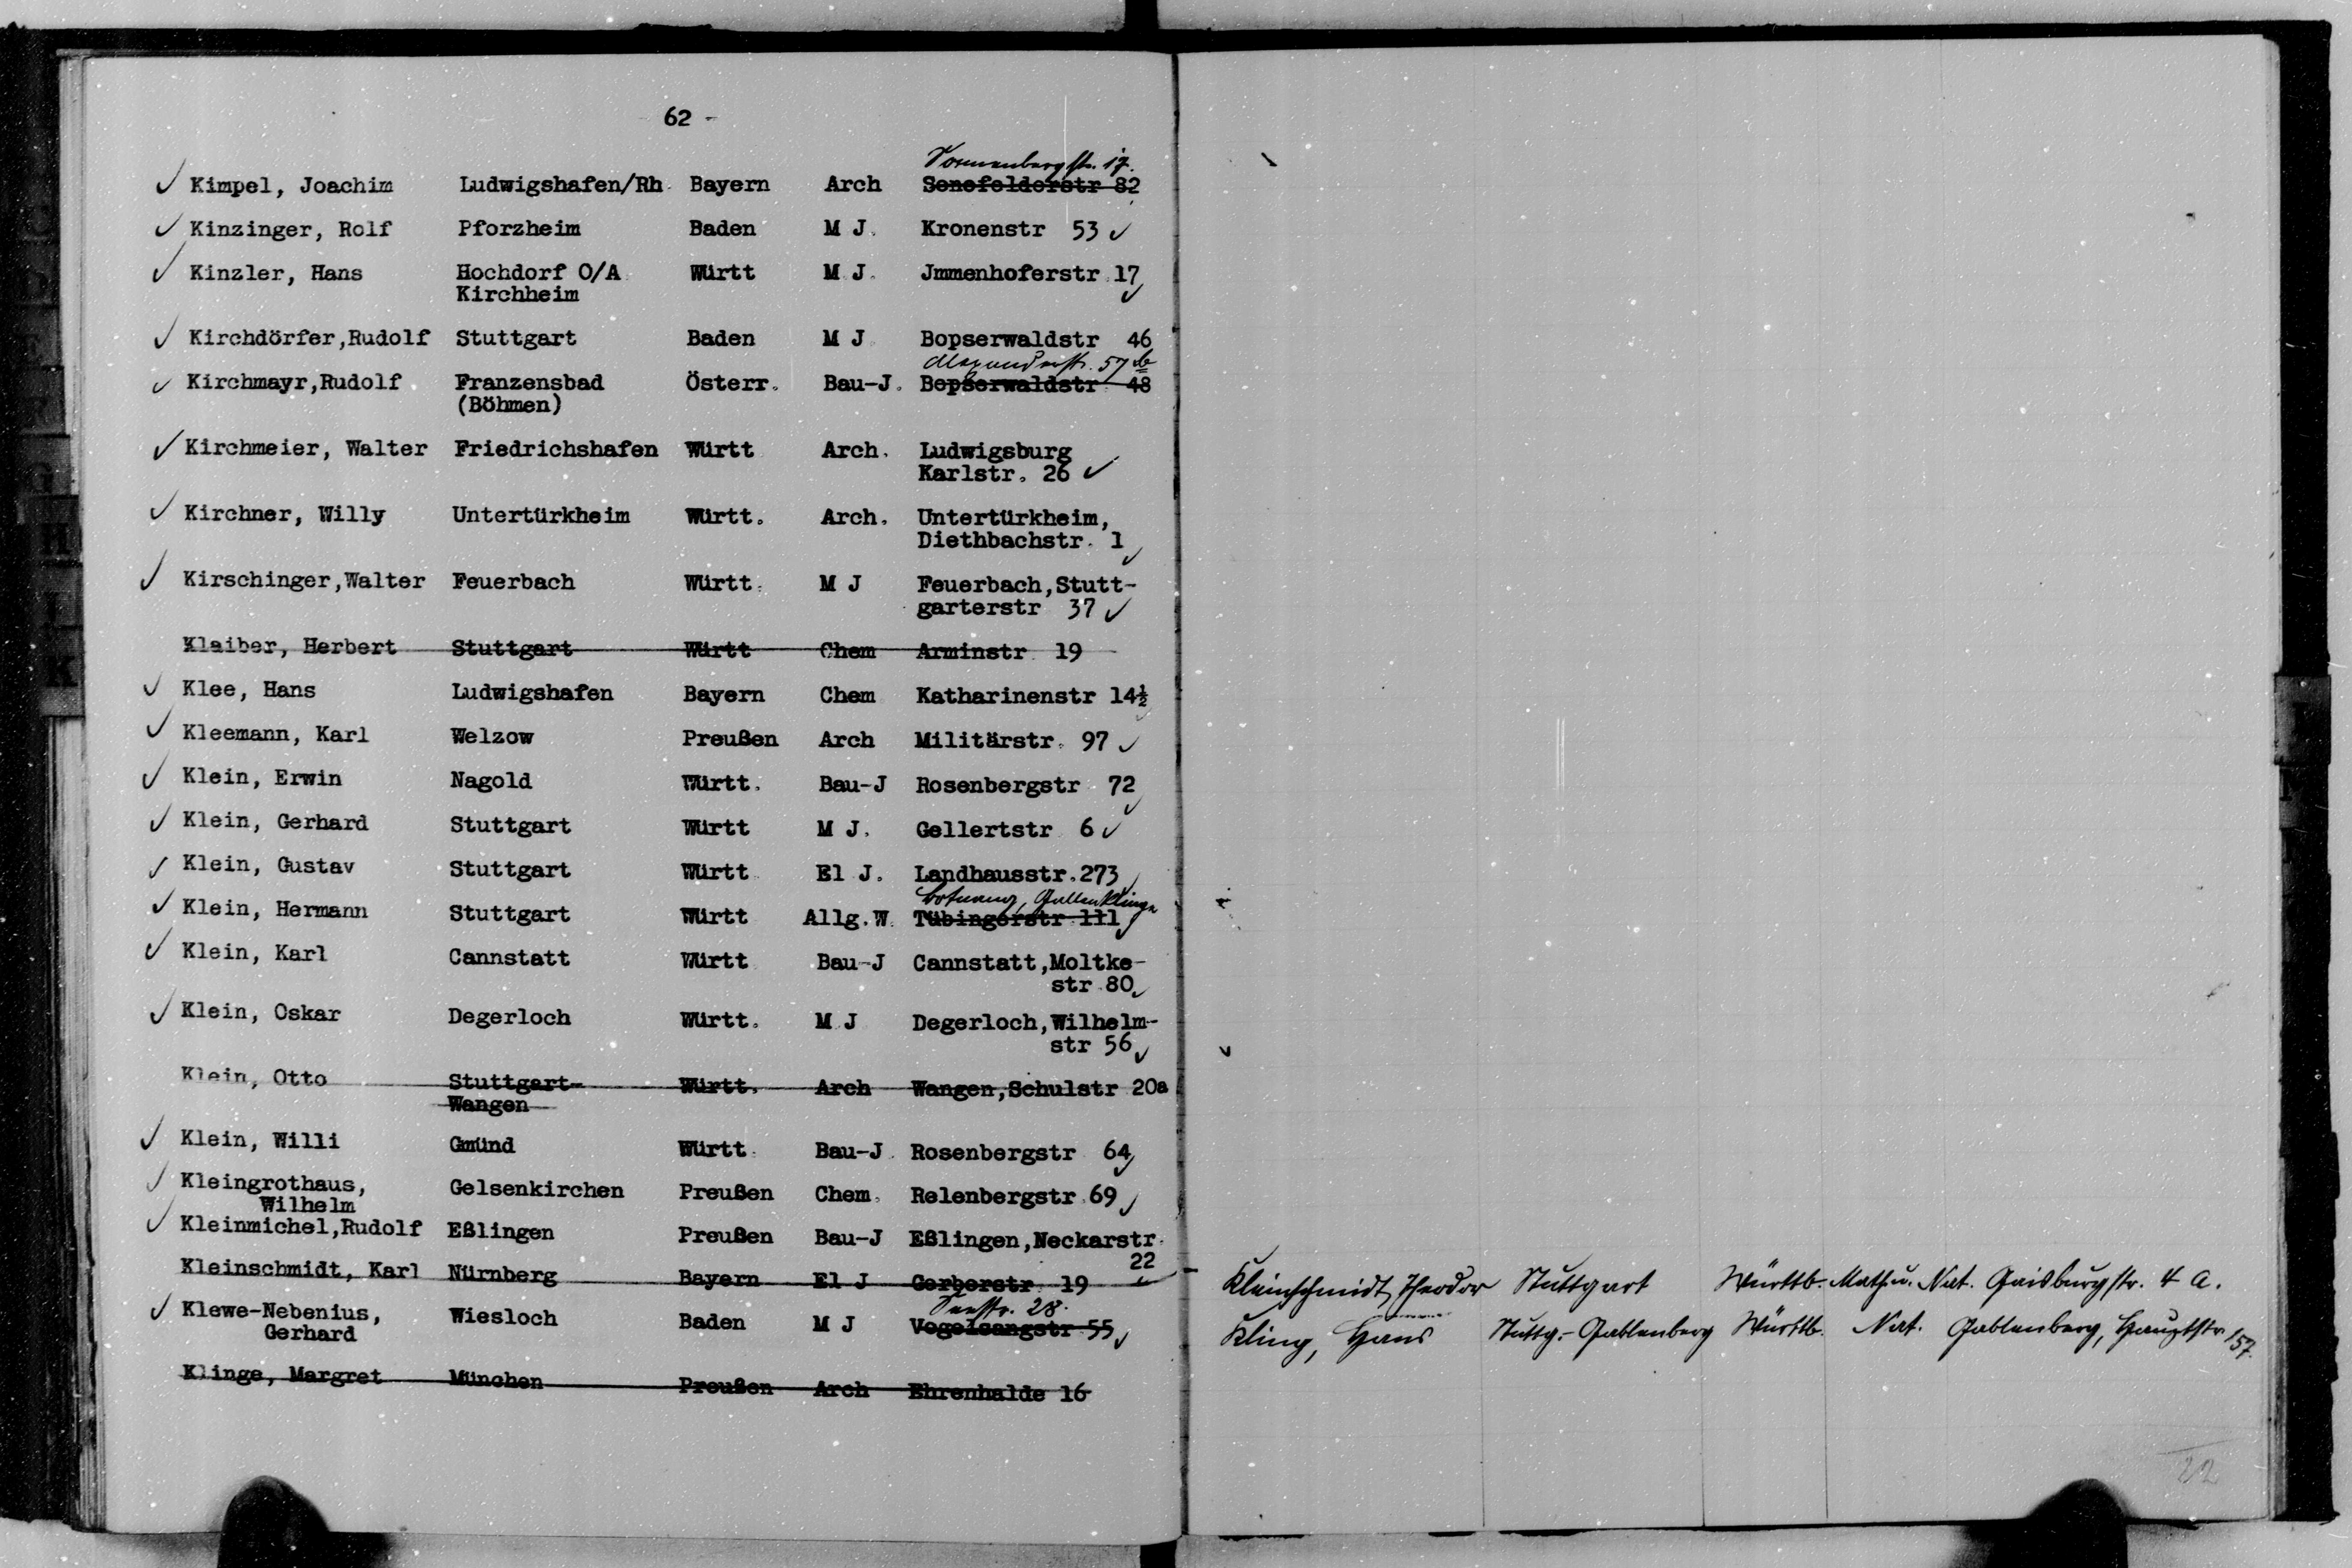 62 -
Sonnenbergstr. 17.
Kimpel, Joachim Ludwigshafen/Rh. Bayern Arch Senefelderstr 82
Kinzinger, Rolf Pforzheim Baden M J. Kronenstr 53
Kinzler, Hans Hochdorf O/A Württ M J. Jmmenhoferstr 17
Kirchheim
Kirchdörfer,Rudolf Stuttgart Baden M J Bopserwaldstr 46
Alexanderstr. 57 b
Kirchmayr,Rudolf Franzensbad Österr. Bau-J. Bopserwaldstr 48
(Böhmen)
Kirchmeier, Walter Friedrichshafen Württ Arch. Ludwigsburg
Karlstr. 26
Kirchner, Willy Untertürkheim Württ. Arch. Untertürkheim,
Diethbachstr. 1
Kirschinger,Walter Feuerbach Württ. M J Feuerbach,Stutt-
garterstr 37
Klaiber, Herbert Stuttgart Württ Chem Arminstr 19
Klee, Hans Ludwigshafen Bayern Chem Katharinenstr 14½
Kleemann, Karl Welzow Preußen Arch Militärstr. 97
Klein, Erwin Nagold Württ. Bau-J Rosenbergstr 72
Klein, Gerhard Stuttgart Württ M J. Gellertstr 6
Klein, Gustav Stuttgart Württ El J. Landhausstr.273
Botnang, Gallenklinge
Klein, Hermann Stuttgart Württ Allg.W. Tübingerstr 111
Klein, Karl Cannstatt Württ Bau-J Cannstatt,Moltke-
str 80
Klein, Oskar Degerloch Württ. M J Degerloch,Wilhelm-
str 56
Klein, Otto Stuttgart- Württ. Arch Wangen,Schulstr 20a
Wangen
Klein, Willi Gmünd Württ. Bau-J. Rosenbergstr 64
Kleingrothaus, Gelsenkirchen Preußen Chem. Relenbergstr 69
Wilhelm
Kleinmichel,Rudolf Eßlingen Preußen Bau-J Eßlingen,Neckarstr.
22
Kleinschmidt, Karl Nürnberg Bayern El J Gerberstr 19
Seestr. 28.
Klewe-Nebenius, Wiesloch Baden M J Vogelsangstr 55
Gerhard
Klinge, Margret München Preußen Arch Ehrenhalde 16
Kleinschmidt, Theodor Stuttgart Württb. Math u. Nat. Gaisburgstr. 4 a.
Kling, Hans Stuttg.-Gablenberg Württb. Nat. Gablenberg, Hauptstr. 157.
22